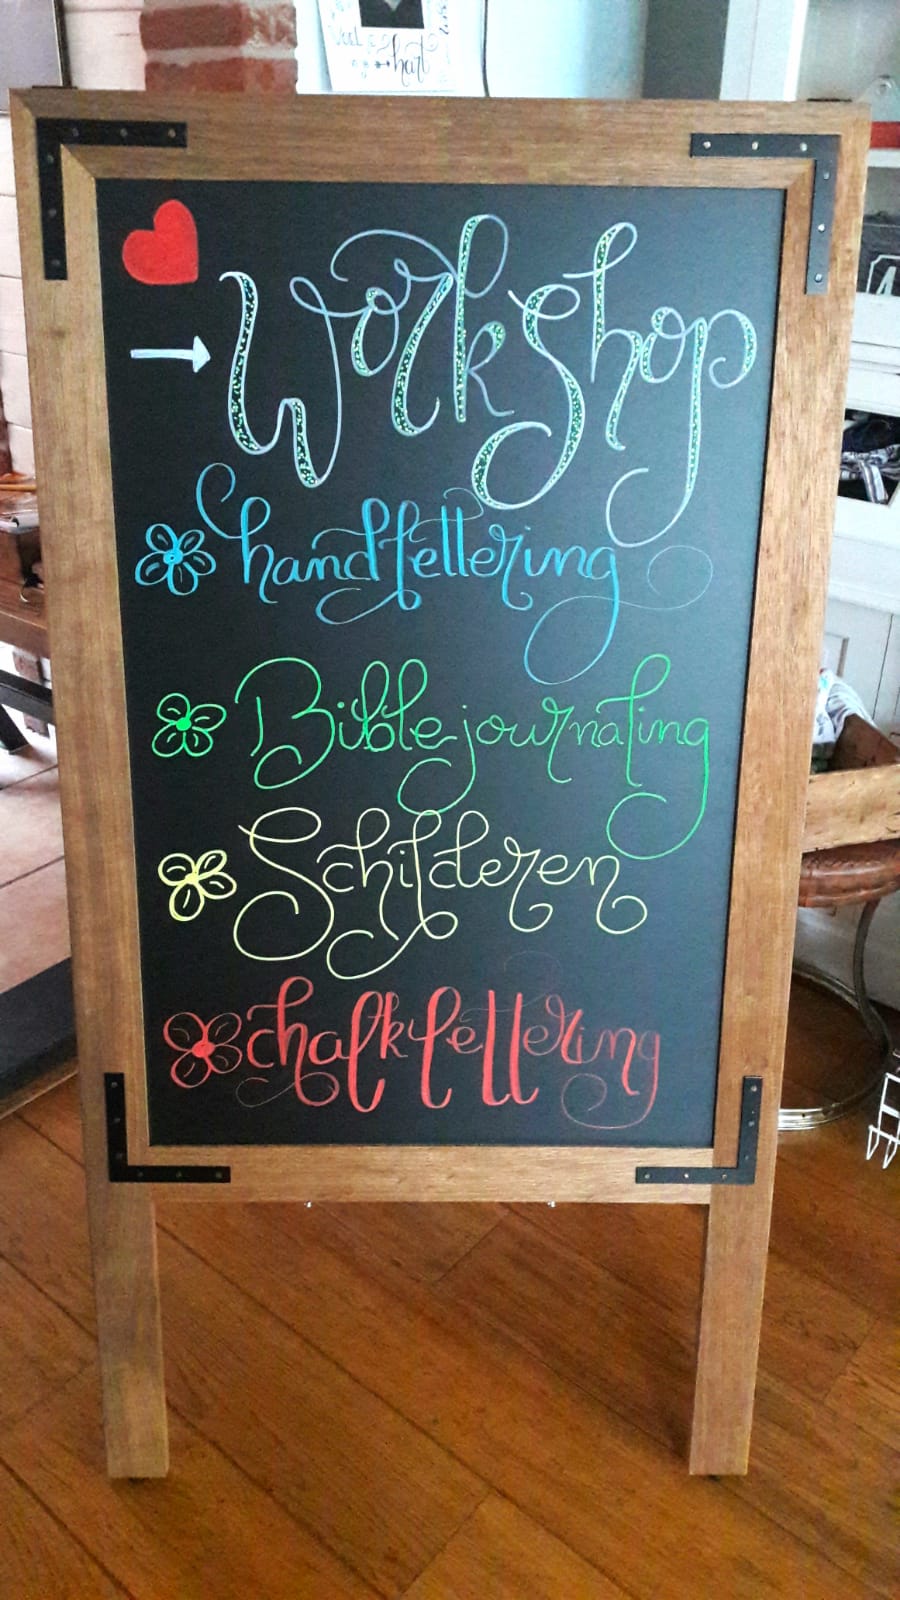 Workshop
handlettering
Bible journaling
Schilderen
chalklettering